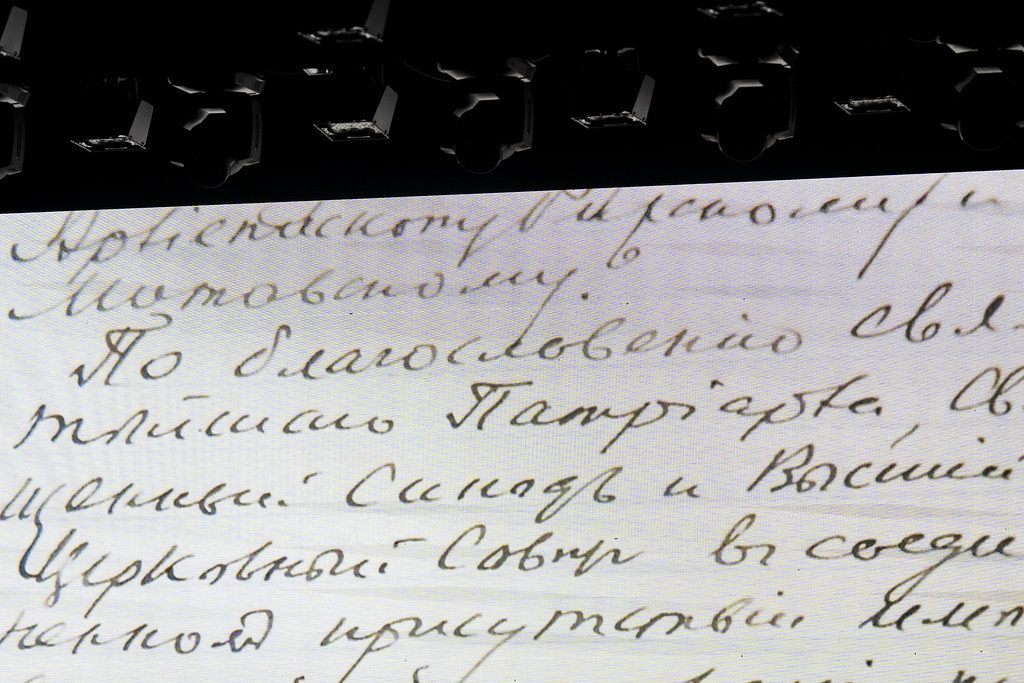 Архіепископу и
По благословенію Свя-
тѣйшаго Патріарха, Св
щенный Синодъ и Высшій
Церковный Совѣтъ въ соеди
ненномъ присутствіи имѣ